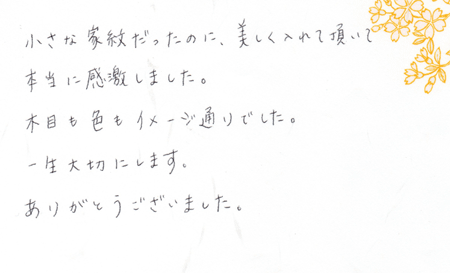 小さな家紋だったのに、美しく入れて頂いて
本当に感激しました。
木目も色もイメージ通りでした。
一生大切にします。
ありがとうございました。